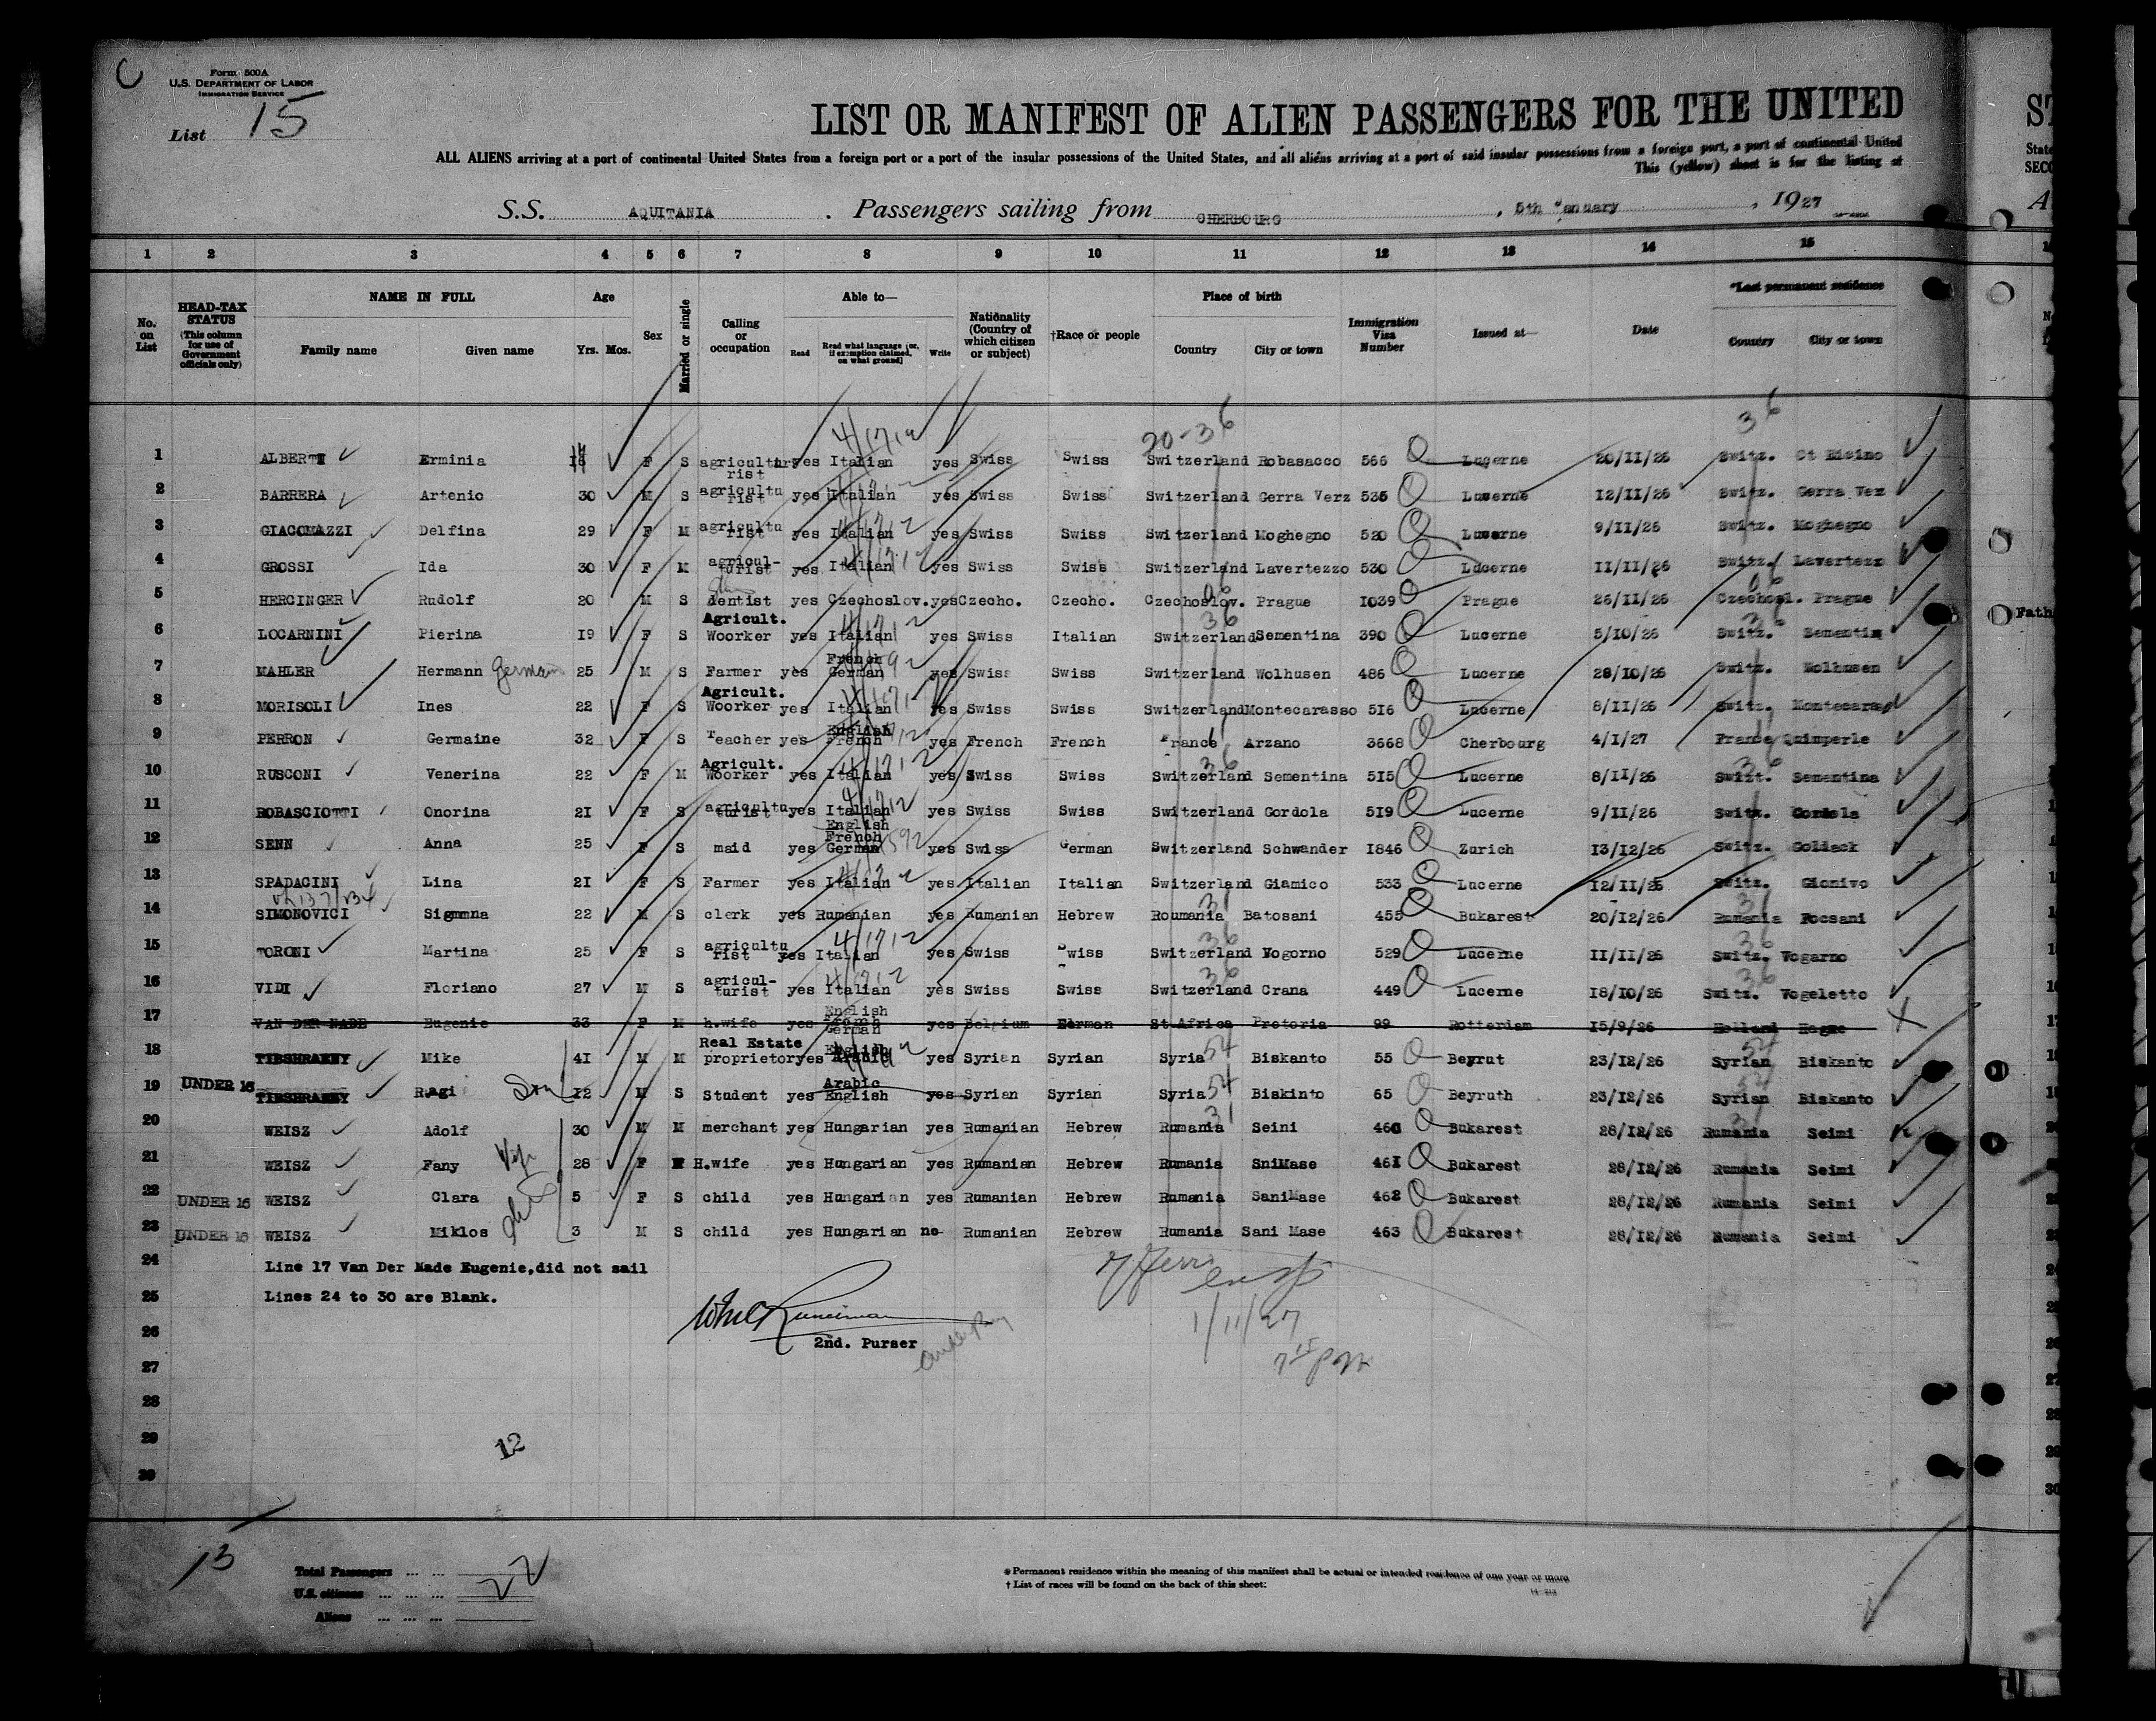 C
Form 500A
U.S. DEPARTMENT OF LABOR
IMMIGRATION SERVICE
List 15
LIST OR MANIFEST OF ALIEN PASSENGERS FOR THE UNITED
ALL ALIENS arriving at a port of continental United States from a foreign port or a port of the insular possessions of the United States, and all aliens arriving at a port of said insular possessions from a foreign port, a port of continental United
This (yellow) sheet is for the listing of
S.S. AQUITANIA . Passengers sailing from CHERBOURG , 5th January , 1927
1 2 3 4 5 6 7 8 9 10 11 12 13 14 15
No. on List
HEAD-TAX STATUS (This column for use of Government officials only)
NAME IN FULL Family name Given name
Age Yrs. Mos.
Sex
Married or single
Calling or occupation
Able to— Read Read what language [or, if exemption claimed, on what ground] Write
Nationality (Country of which citizen or subject)
†Race or people
Place of birth Country City or town
Immigration Visa Number
Issued at—
Date
*Last permanent residence Country City or town
20-36 36
1 ALBERTI Erminia F S agriculturist yes Italian yes Swiss Swiss Switzerland Robasacco 566 Lucerne 20/II/26 Switz.
2 BARRERA Artenio 30 M S agricultu rist yes Italian yes Swiss Swiss Switzerland Gerra Verz 535 Lucerne I2/II/26 Switz. Gerra Vez
3 GIACOMAZZI Delfina 29 F M agricultu rist yes Italian yes Swiss Swiss Switzerland Moghegno 520 Lucerne 9/II/26 Switz. Moghegno
4 GROSSI Ida 30 F M agricul- turist yes Italian yes Swiss Swiss Switzerland Lavertezzo 530 Lucerne II/II/26 Switz. Lavertezz
5 HERCINGER Rudolf 20 M S dentist yes Czechoslov. yes Czecho. Czecho. Czechoslov. Prague I039 Prague 26/II/26 Czechosl. Prague
6 LOCARNINI Pierina I9 F S Agricult. Woorker yes Italian yes Swiss Italian Switzerland Sementina 390 Lucerne 5/IO/26 Switz. Sementin
7 MAHLER Hermann German 25 M S Farmer yes French German yes Swiss Swiss Switzerland Wolhusen 486 Lucerne 28/IO/26 Switz. Wolhusen
8 MORISOLI Ines 22 F S Agricult. Woorker yes Italian yes Swiss Swiss Switzerland Montecarasso 5I6 Lucerne 8/II/26 Switz. Montecaras
9 PERRON Germaine 32 F S Teacher yes English French yes French French France Arzano 3668 Cherbourg 4/I/27 France Quimperle
10 RUSCONI Venerina 22 F M Agricult. Woorker yes Italian yes Swiss Swiss Switzerland Sementina 5I5 Lucerne 8/II/26 Swizt. Sementina
11 ROBASCIOTTI Onorina 2I F S agricultu turist yes Italian yes Swiss Swiss Switzerland Gordola 5I9 Lucerne 9/II/26 Switz. Gordola
12 SENN Anna 25 F S maid yes English French German yes Swiss German Switzerland Schwander I846 Zurich I3/I2/26 Switz.
13 SPADACINI Lina 2I F S Farmer yes Italian yes Italian Italian Switzerland Giamico 533 Lucerne I2/II/26 Switz. Gionivo
14 SIMONOVICI 22 M S clerk yes Rumanian yes Rumanian Hebrew Roumania Batosani 455 Bukarest 20/I2/26 Rumania Focsani
15 TORONI Martina 25 F S agricultu rist yes Italian yes Swiss Swiss Switzerland Vogorno 529 Lucerne II/II/26 Switz. Vogarno
16 VIDI Floriano 27 M S agricul- turist yes Italian yes Swiss Swiss Switzerland Crana 449 Lucerne I8/IO/26 Switz. Vogeletto
17 VAN DER MADE Eugenie 33 F M h.wife yes English French German yes Belgium German St.Africa Pretoria 99 Rotterdam I5/9/26 Holland Hague
18 TIBSHRAENY Mike 4I M M Real Estate proprietor yes English Arabic yes Syrian Syrian Syria 54 Biskanto 55 Beyrut 23/I2/26 Syrian 54 Biskanto
19 UNDER 16 TIBSHRAENY Ragi Son I2 M S Student yes Arabic English yes Syrian Syrian Syria 54 Biskinto 65 Beyruth 23/I2/26 Syrian 54 Biskanto
20 WEISZ Adolf 30 M M merchant yes Hungarian yes Rumanian Hebrew Rumania 31 Seini 460 Bukarest 28/I2/26 Rumania Seimi
21 WEISZ Fany Wife 28 F M H.wife yes Hungarian yes Rumanian Hebrew Rumania SniMase 46I Bukarest 28/I2/26 Rumania Seimi
22 UNDER 16 WEISZ Clara 5 F S child yes Hungarian yes Rumanian Hebrew Rumania SaniMase 462 Bukarest 28/I2/26 Rumania Seimi
23 UNDER 16 WEISZ Miklos 3 M S child yes Hungarian no Rumanian Hebrew Rumania Sani Mase 463 Bukarest 28/I2/26 Rumania Seimi
24 Line 17 Van Der Made Eugenie,did not sail
25 Lines 24 to 30 are Blank.
26
2nd. Purser
1/11/27
27
28
29
12
30
13
Total Passengers ... ...
U.S. citizens ... ... ... 22
Aliens ... ... ...
* Permanent residence within the meaning of this manifest shall be actual or intended residence of one year or more
† List of races will be found on the back of this sheet: